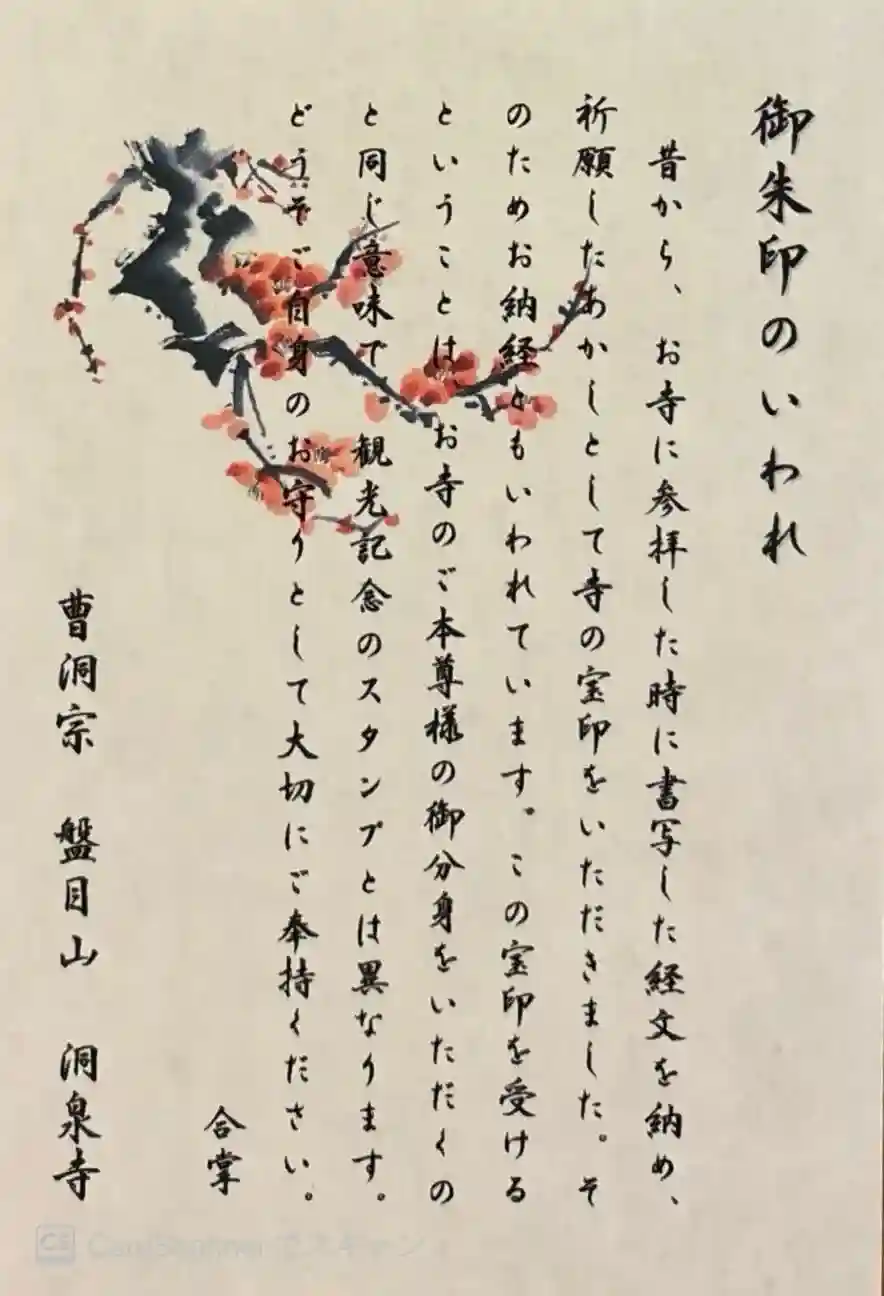 御朱印のいわれ
昔から、お寺に参拝した時に書写した経文を納め、
祈願したあかしとして寺の宝印をいただきました。そ
のためお納経ともいわれています。この宝印を受ける
ということは、お寺のご本尊様の御分身をいただくの
と同じ意味で、観光記念のスタンプとは異なります。
どうぞご自身のお守りとして大切にご奉持ください。
合掌
曹洞宗　盤目山　洞泉寺
CS CamScanner でスキャン